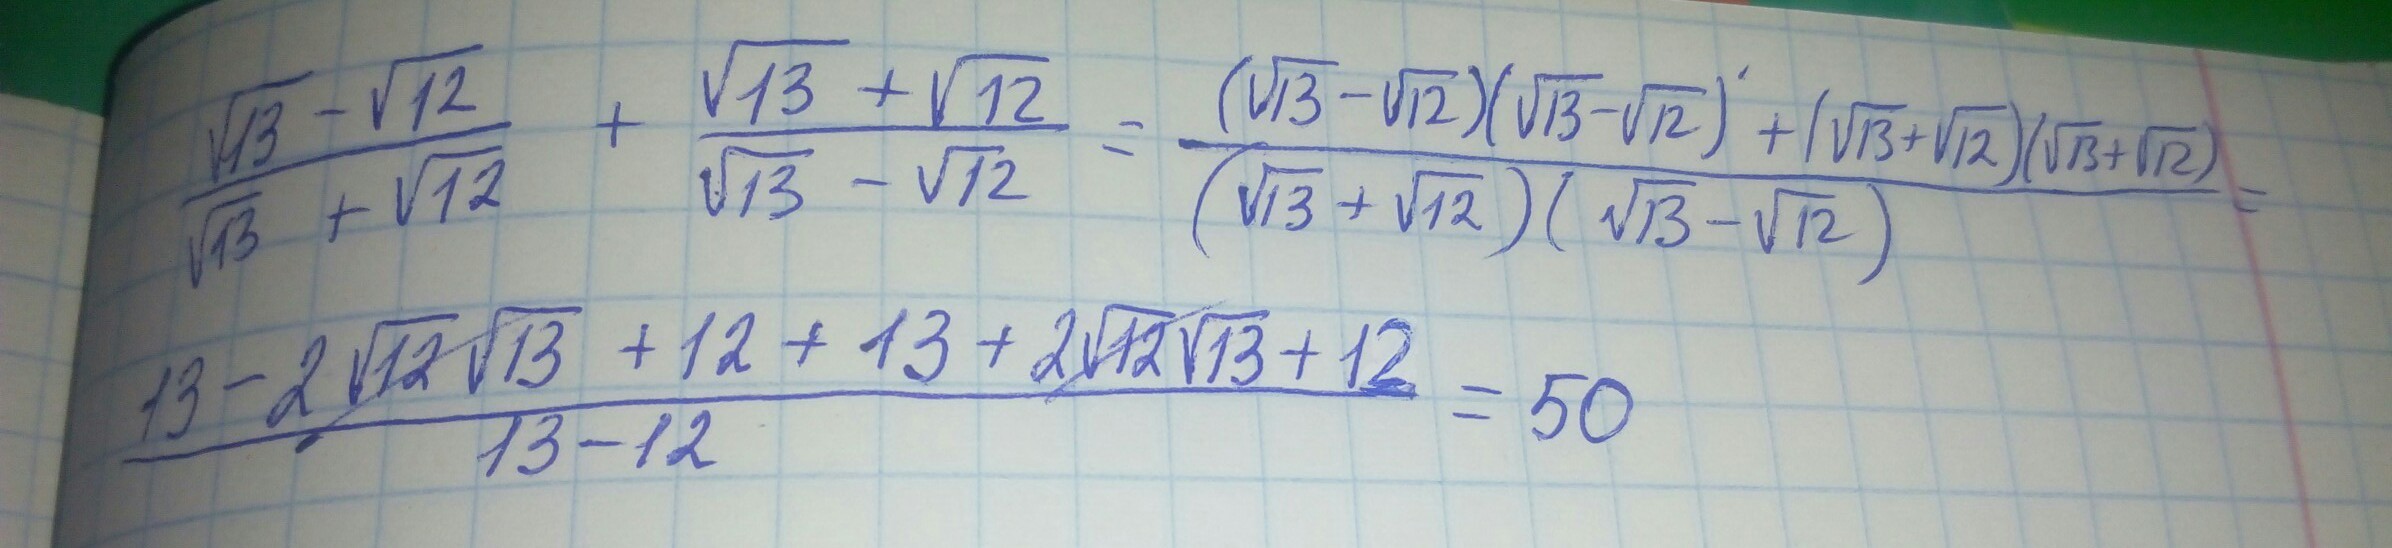 (√13 − √12)/(√13 + √12) + (√13 + √12)/(√13 − √12) = ((√13 − √12)(√13 − √12) + (√13 + √12)(√13 + √12))/((√13 + √12)(√13 − √12)) =
(13 − 2√12√13 + 12 + 13 + 2√12√13 + 12)/(13 − 12) = 50